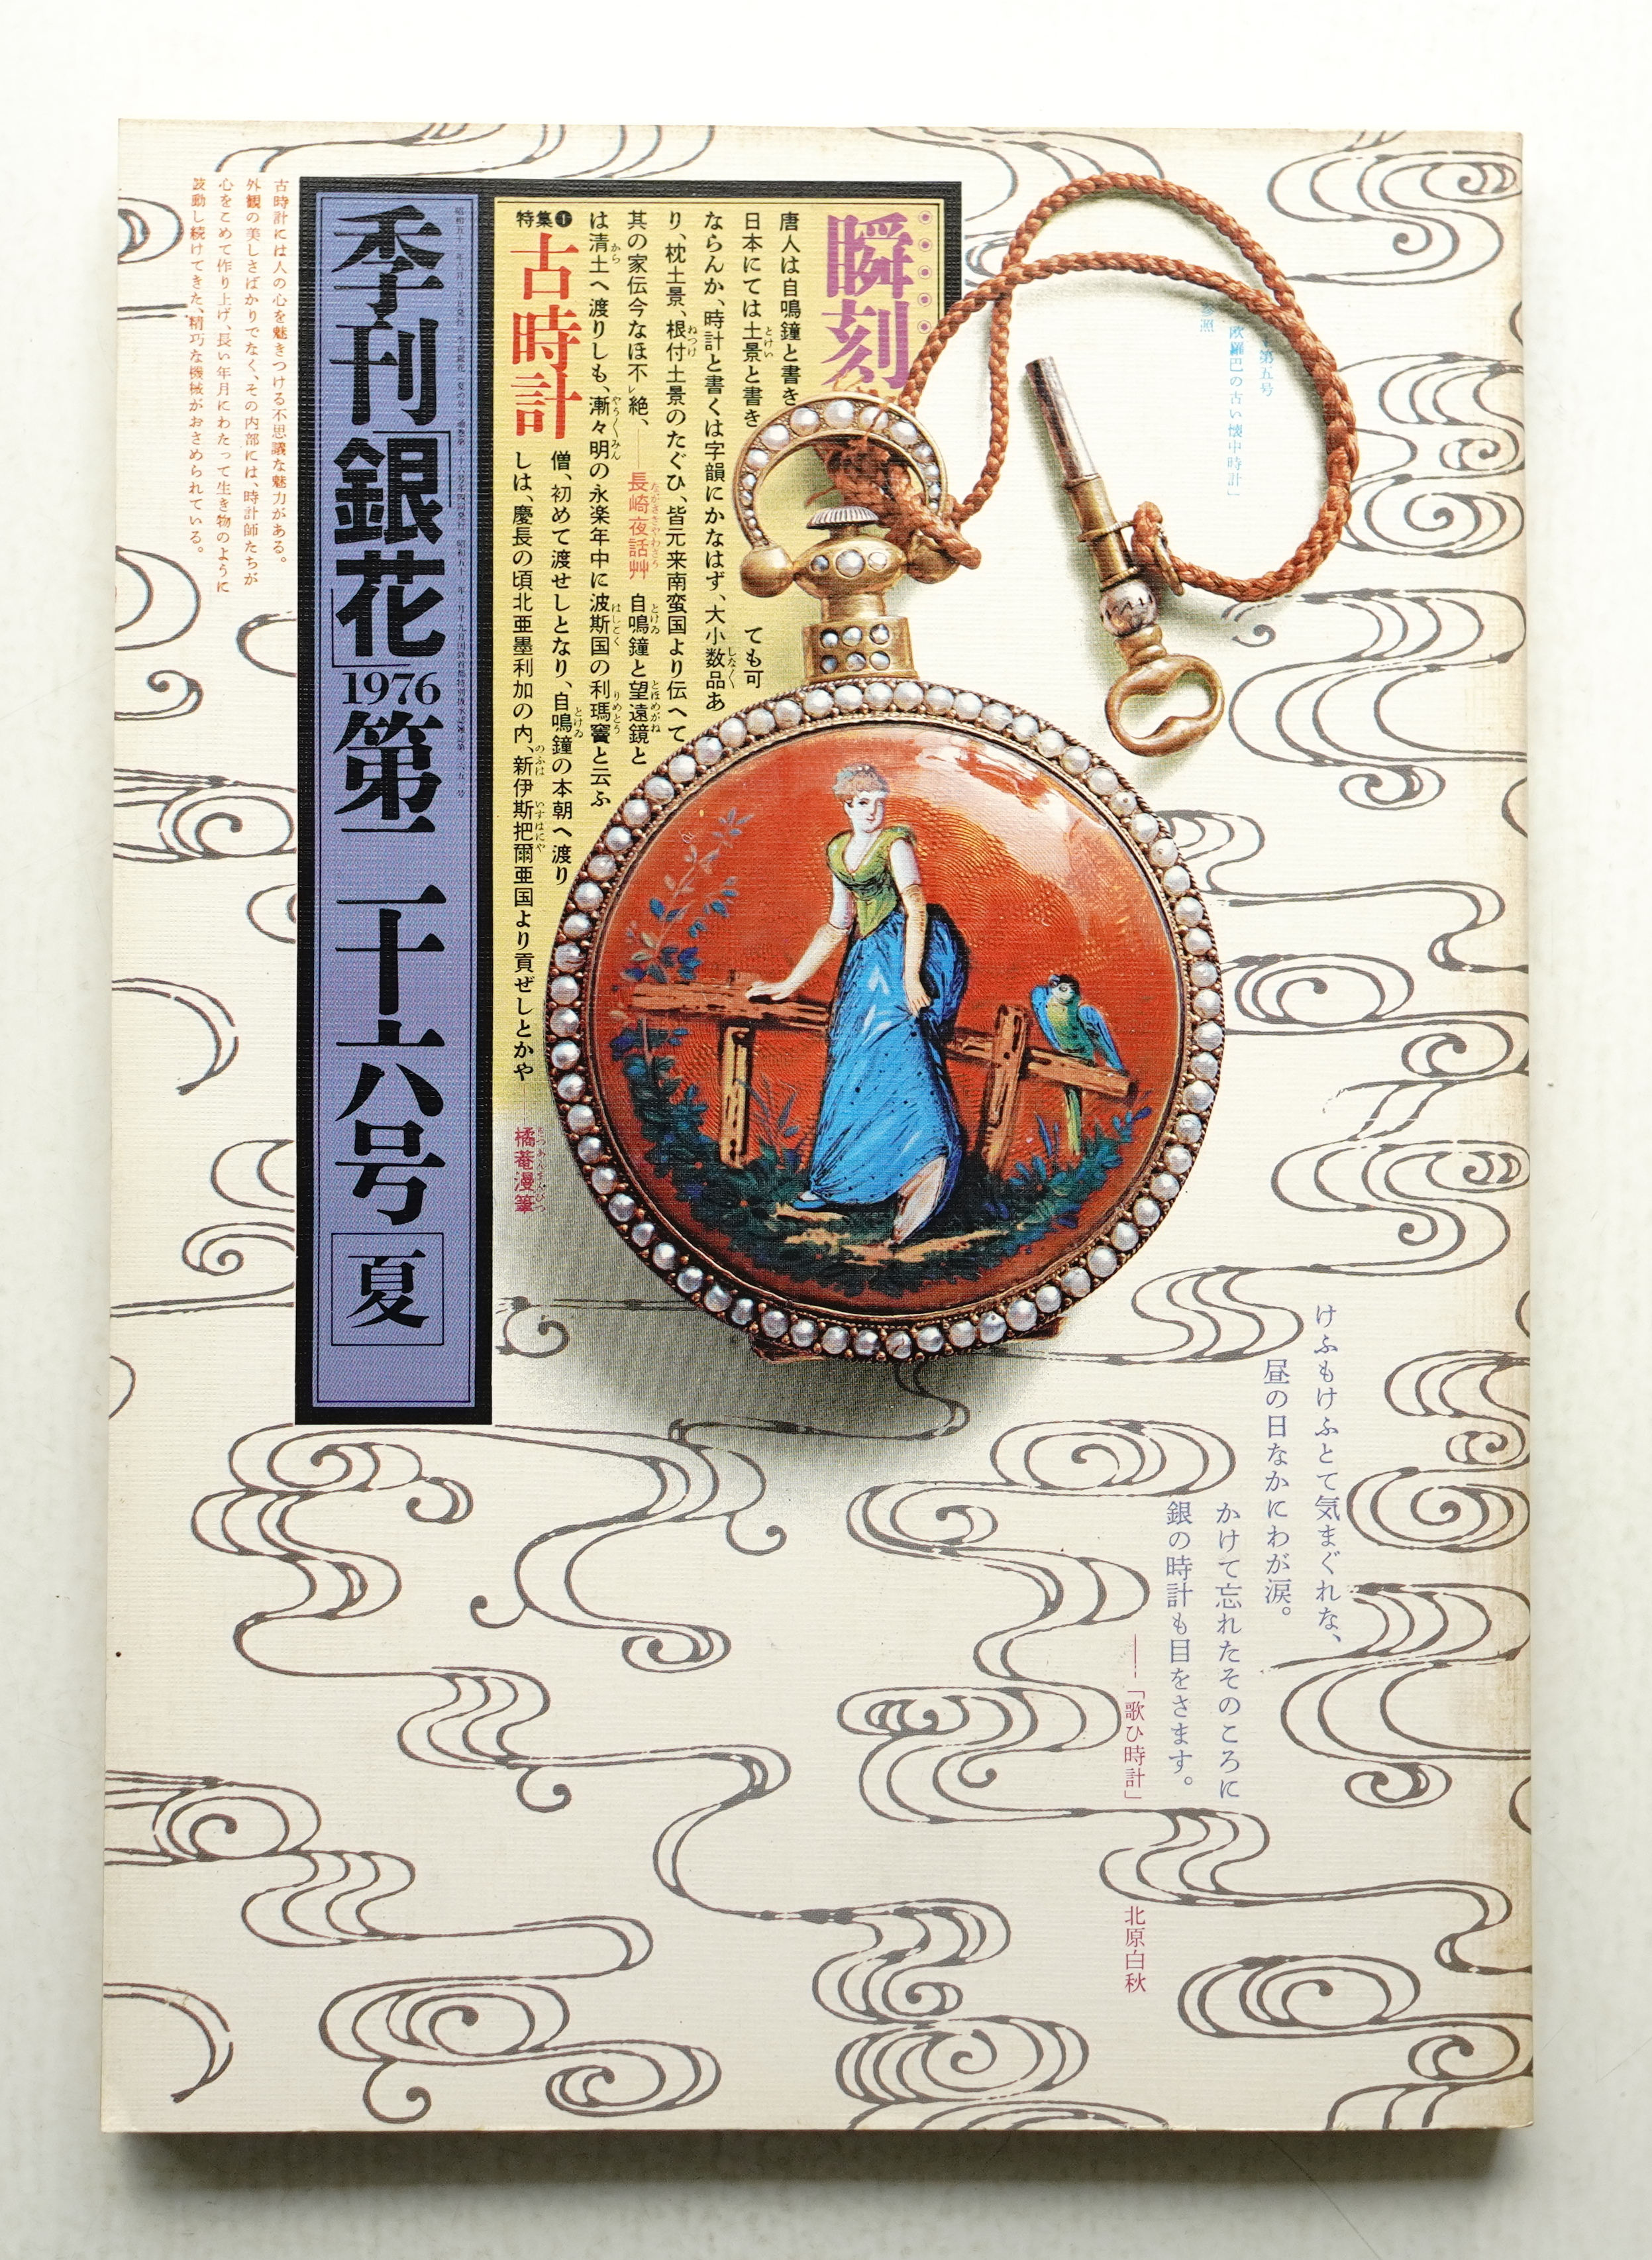 古時計には人の心を魅きつける不思議な魅力がある。
外観の美しさばかりでなく、その内部には、時計師たちが
心をこめて作り上げ、長い年月にわたって生き物のように
鼓動し続けてきた、精巧な機械がおさめられている。
季刊「銀花」1976第二十六号 夏
瞬刻
唐人は自鳴鐘と書き
日本にては土景と書き ても可
ならんか、時計と書くは字韻にかなはず、大小数品あ
り、枕土景、根付土景のたぐひ、皆元来南蛮国より伝へて
其の家伝今なほ不レ絶、——長崎夜話艸 自鳴鐘と望遠鏡と
は清土へ渡りしも、漸々明の永楽年中に波斯国の利瑪竇と云ふ
特集❶ 古時計
僧、初めて渡せしとなり、自鳴鐘の本朝へ渡り
しは、慶長の頃北亜墨利加の内、新伊斯把爾亜国より貢ぜしとかや——橘菴漫筆
第五号
欧羅巴の古い懐中時計」
参照
けふもけふとて気まぐれな、
昼の日なかにわが涙。
かけて忘れたそのころに
銀の時計も目をさます。
——「歌ひ時計」 北原白秋